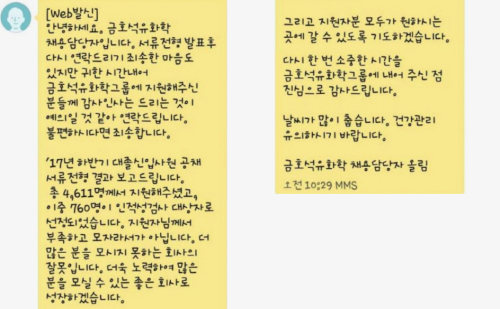 [Web발신]
안녕하세요. 금호석유화학
채용담당자입니다. 서류전형 발표후
다시 연락드리기 죄송한 마음도
있지만 귀한 시간내어
금호석유화학그룹에 지원해주신
분들께 감사인사는 드리는 것이
예의일 것 같아 연락드립니다.
불편하시다면 죄송합니다.
'17년 하반기 대졸신입사원 공채
서류전형 결과 보고드립니다.
총 4,611명께서 지원해주셨고,
이중 760명이 인적성검사 대상자로
선정되었습니다. 지원자님께서
부족하고 모자라서가 아닙니다. 더
많은 분을 모시지 못하는 회사의
잘못입니다. 더욱 노력하여 많은
분을 모실 수 있는 좋은 회사로
성장하겠습니다.
그리고 지원자분 모두가 원하시는
곳에 갈 수 있도록 기도하겠습니다.
다시 한 번 소중한 시간을
금호석유화학그룹에 내어 주신 점
진심으로 감사드립니다.
날씨가 많이 춥습니다. 건강관리
유의하시기 바랍니다.
금호석유화학 채용담당자 올림
오전 10:29 MMS